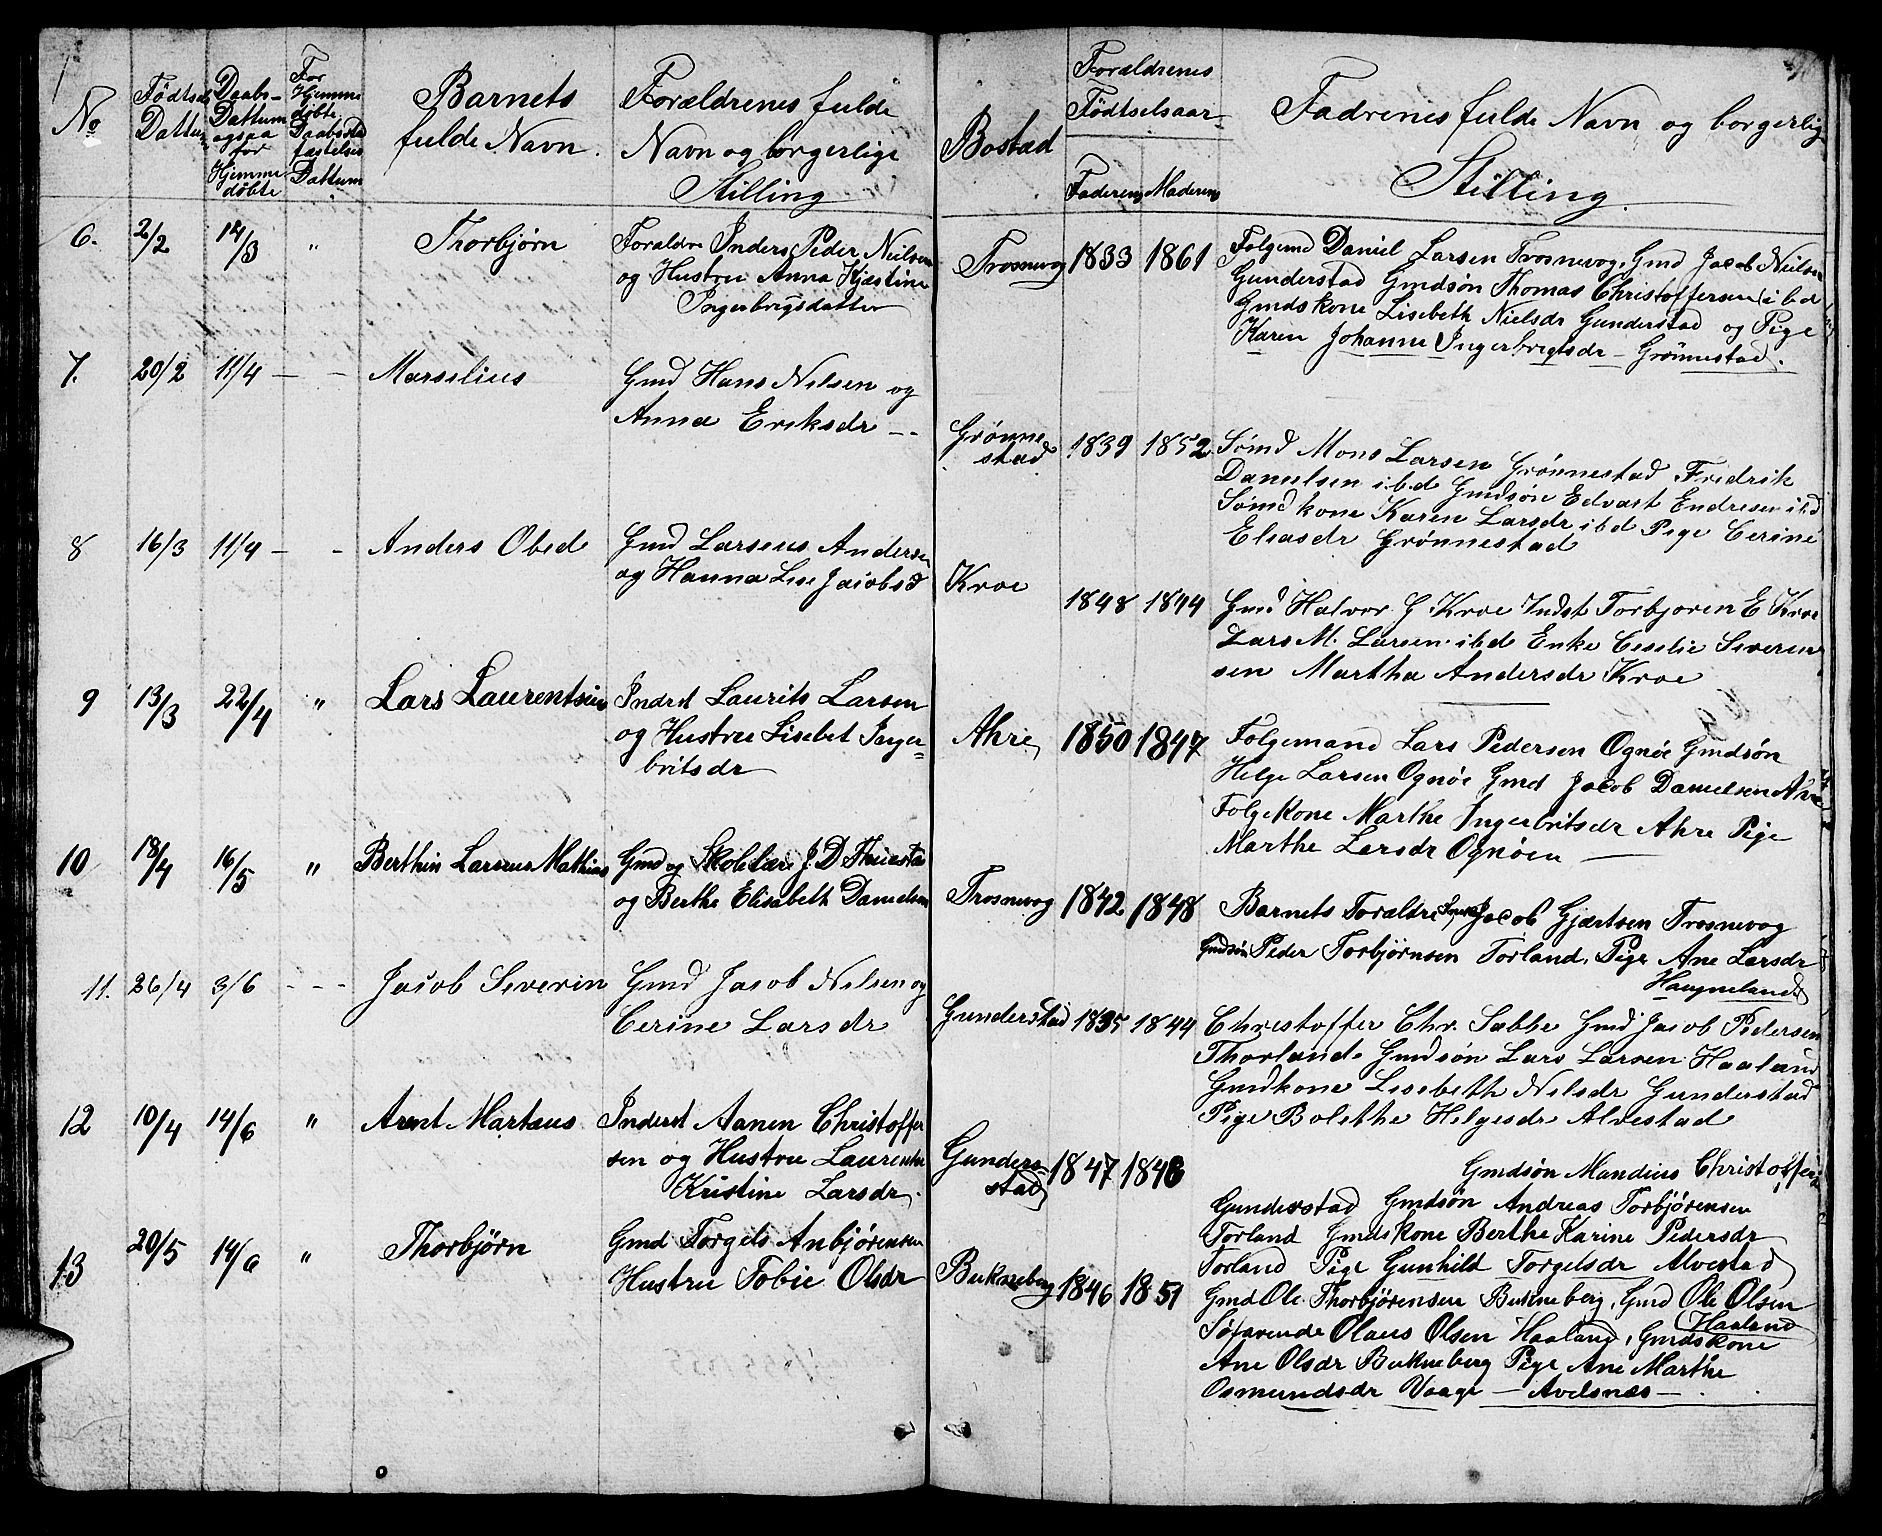 No
Fødtsels Dattum
Daabs-
Dattum
ogsaa
for
Hjemme
døbte
For
Hjemme
døbte
Daabsstad
fæstelses
Dattum
Barnets
fulde Navn.
Forældrenes fulde
Navn og borgerlige
Stilling
Bostad
Forældrenes
Fødtselsaar
Faderens Moderens
Fadrenes fulde Navn og borgerlig
Stilling
6. 2/2 14/3 " Thorbjørn
Foraldre Inders Peder Nielsen
og Hustru Anna Kjæstine
Ingerbrigsdatter
Trosnevog 1833 1861
Folgemd Daniel Larsen Trosnevog, Gmd Jacob Nielsen
Gunderstad Gmdsøn Thomas Christoffersen ibd
Gmdskone Lisebeth Nielsdr Gunderstad og Pige
Karen Johanne Ingerbrigtsdr - Grønnestad.
7. 20/2 11/4 - - Marselius
Gmd Hans Nilsen og
Anna Eriksdr --
Grønne
stad 1839 1852
Sømd Mons Larsen Grønnestad Fredrik
Danielsen ibd Gmdsøn Edvart Endresen ibd
Sømdkone Karen Larsdr ibd Pige Cerine
Eliasdr Grønnestad
8 16/3 11/4 - - Anders Obed
Gmd Larseus Andersen
og Hanna Lise Jacobsd
Kroe 1848 1844
Gmd Halvor G Kroe Indst Torbjoren E Kroe
Lars M. Larsen ibd Enke Ceselie Severin
sen Martha Andersdr Kroe
9 13/3 22/4 " Lars Laurentsius
Inderst Laurits Larsen
og Hustru Lisebet Inger-
britsdr
Ahre 1850 1847
Folgemand Lars Pedersen Ognøe Gmdsøn
Helge Larsen Ognøe Gmd Jacob Danielsen Ahre
Folgekone Marthe Ingerbritsdr Ahre Pige
Marthe Larsdr Ognøen
10 18/4 16/5 " Berthin Larseus Mathias
Gmd og Skolelær J. D. Thuestad
og Berthe Elisabeth Danielsen
Trosnevog 1842 1848
Barnets Foraldre, Jacob Gjærtsen Trosnevog
Gmdsøn Peder Torbjørnsen Torland, Pige Ane Larsdr
Haugneland
11. 26/4 3/6 - - - Jacob Severin
Gmd Jacob Nilsen og
Cerine Larsdr
Gunderstad 1835 1844
Christoffer Chr. Sæbbe Gmd Jacob Pedersen
Thorland Gmdsøn Lars Larsen Haaland
Gmdkone Lisebeth Nilsdr Gunderstad
Pige Bolethe Helgesdr Alvestad
12 10/4 14/6 " Arent Martæus
Inderst Aanen Christoffer
sen og Hustru Laurentse
Kristine Larsdr.
Gunders-
stad 1847 1848
Gmdsøn Mandius Christoffersen
Gunderstad Gmdsøn Andreas Torbjørensen
Torland Gmdskone Berthe Karine Pedersdr
Torland Pige Gunhild Torgelsdr Alvestad
13 20/5 14/6 " Thorbjørn
Gmd Torgels Anbjørensen
Hustru Tobie Olsdr
Bukneberg 1846 1851
Gmd Ole Thorbjørensen Bukneberg, Gmd Ole Olsen
Haaland
Søfarende Olaus Olsen Haaland, Gmdskone
Ane Olsdr Bukneberg Pige Ane Marthe
Osmundsdr Vaage - Avelsnæs -